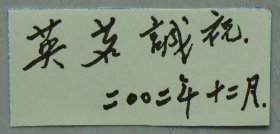 英茗 誠祝.
二〇〇二年十二月.